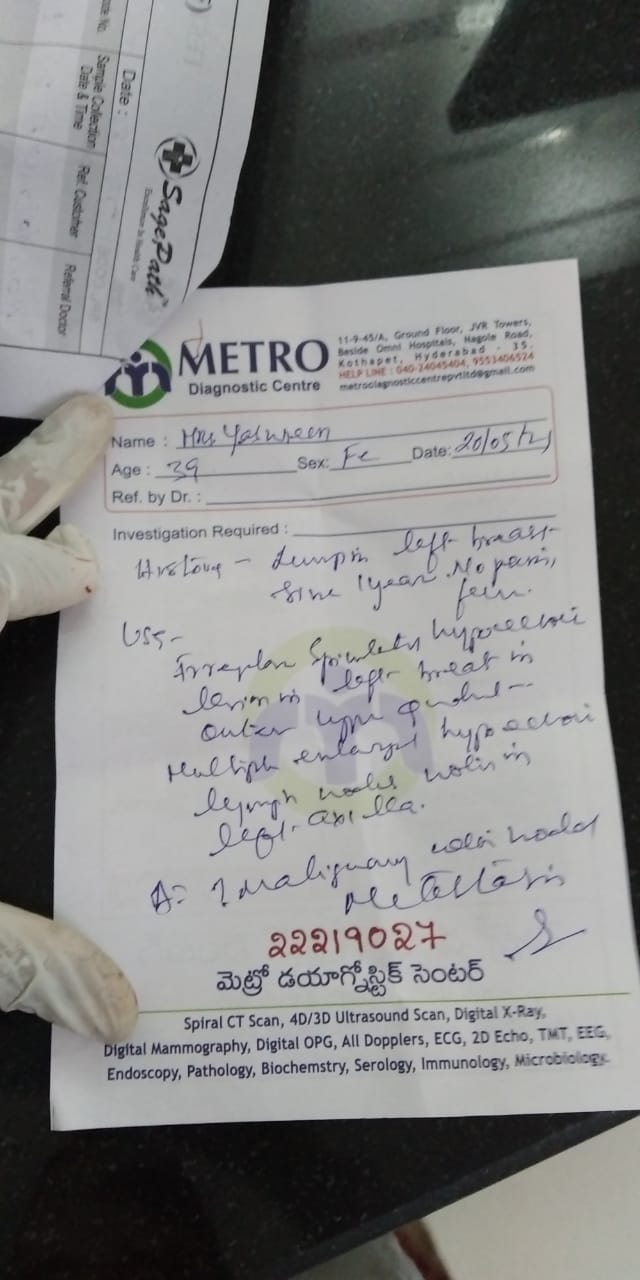 SagePath
Excellence In Health Care
Date :
Sample Collection
Date & Time
Ref. Customer
Referral Doctor
METRO
Diagnostic Centre
11-9-45/A, Ground Floor, JVR Towers,
Beside Omni Hospitals, Nagole Road,
Kothapet, Hyderabad - 35.
HELP LINE : 040-24045404, 9553406524
metrodiagnosticcentrepvtltd@gmail.com
Name : Mrs
Age : 39 Sex: Fe Date: 20/05/21
Ref. by Dr. :
Investigation Required :
History - Lump in left breast
since 1 year. No pain,
fever.
USG -
Irregular spiculated hypoechoic
lesion in left breast in
outer upper quadrant
Multiple enlarged hypoechoic
lymph nodes in
left axilla.
? Malignancy nodal
Metastasis
22219027
మెట్రో డయాగ్నోస్టిక్ సెంటర్
Spiral CT Scan, 4D/3D Ultrasound Scan, Digital X-Ray,
Digital Mammography, Digital OPG, All Dopplers, ECG, 2D Echo, TMT, EEG,
Endoscopy, Pathology, Biochemstry, Serology, Immunology, Microbiology.